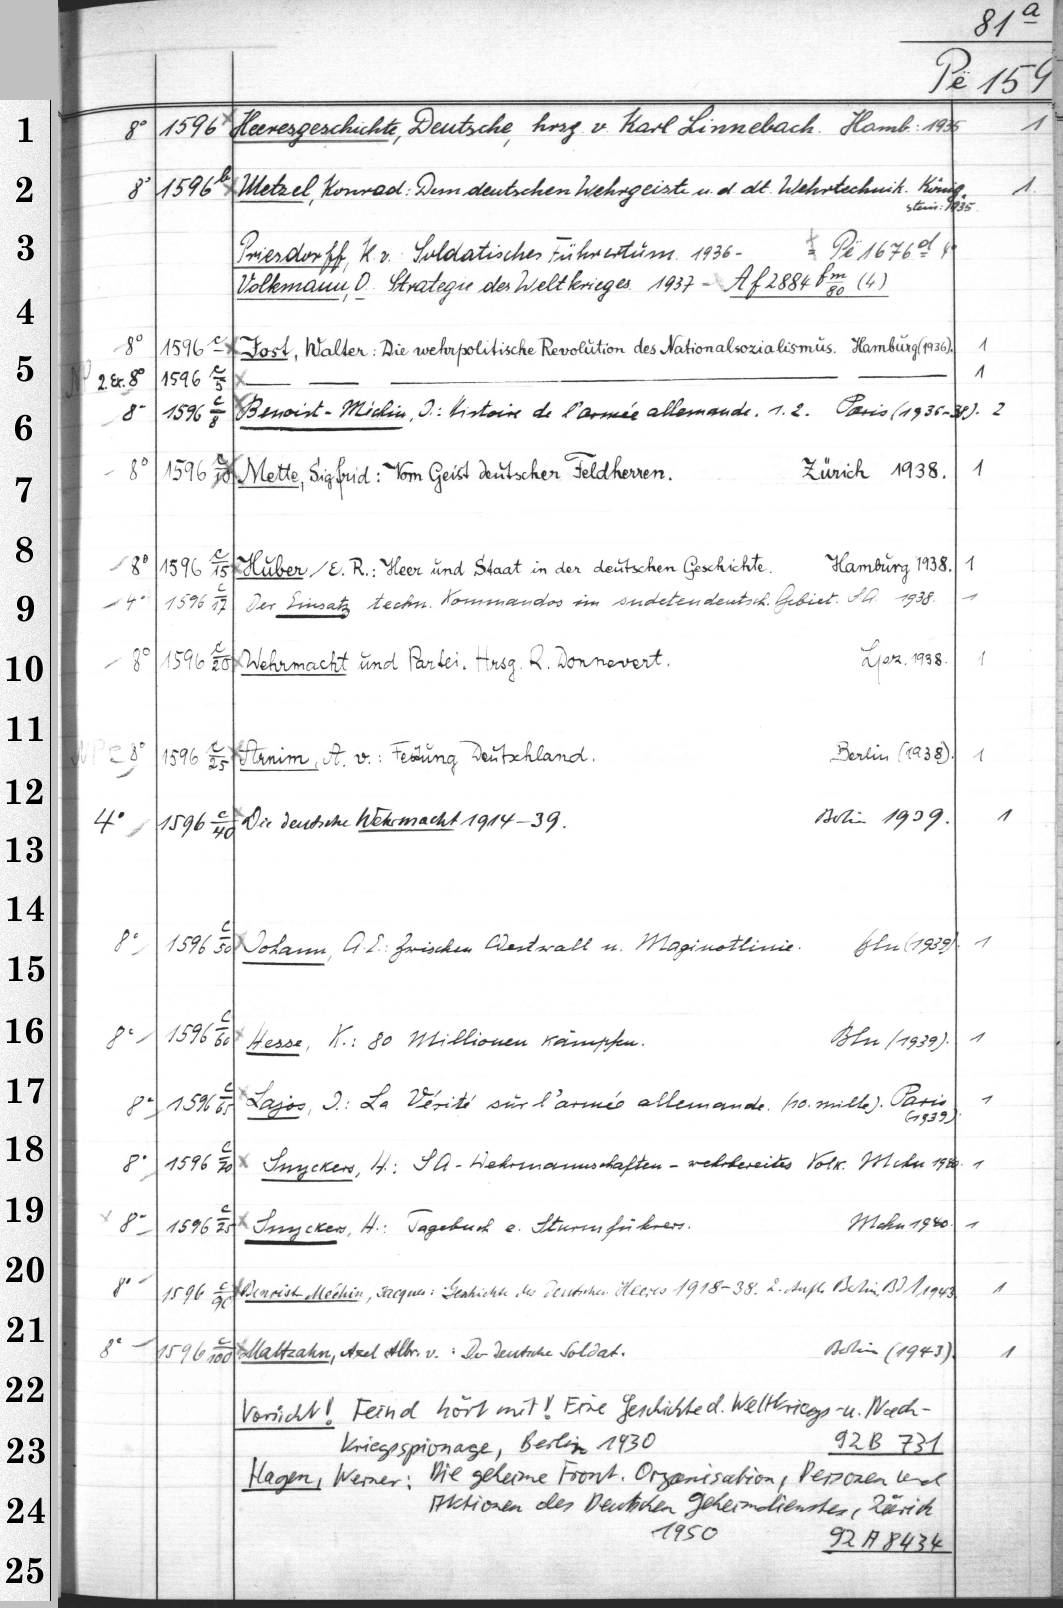 81 a
Pë 159
1 8° 1596 Heeresgeschichte, Deutsche, hrsg v. Karl Linnebach. Hamb: 1935 1
2 8° 1596 b Metzel, Konrad: Dem deutschen Wehrgeiste u. d dt. Wehrtechnik. König- 1
stein: 1935
3 Priesdorff, K v. Soldatisches Führertum. 1936- Pë 1676 d 4°
Volkmann, O. Strategie des Weltkrieges 1937 - Af 2884 fm/80 (4)
4
8° 1596 c Jost, Walter: Die wehrpolitische Revolution des Nationalsozialismus. Hamburg (1936). 1
5 NP 2. Ex. 8° 1596 c/5 — — — — 1
6 8° 1596 c/8 Benoist-Méchin, J.: Histoire de l'armée allemande. 1. 2. Paris (1936-38). 2
7 8° 1596 c/10 Mette, Sigfrid: Vom Geist deutscher Feldherren. Zürich 1938. 1
8 8° 1596 c/15 Huber, E. R.: Heer und Staat in der deutschen Geschichte. Hamburg 1938. 1
9 4° 1596 c/17 Der Einsatz techn. Kommandos im sudetendeutsch. Gebiet. SA. 1938. 1
10 8° 1596 c/20 Wehrmacht und Partei. Hrsg. R. Donnevert. Lpz. 1938. 1
11 NP 8° 1596 c/25 Arnim, A. v.: Festung Deutschland. Berlin (1938). 1
12 4° 1596 c/40 Die deutsche Wehrmacht 1914-39. Berlin 1939. 1
13
14
8° 1596 c/50 Johann, A. E.: Zwischen Westwall u. Maginotlinie. Bln (1939). 1
15
16 8° 1596 c/60 Hesse, K.: 80 Millionen kämpfen. Bln (1939). 1
17 8° 1596 c/65 Lajos, I.: La Vérité sur l'armée allemande. (10. mille). Paris 1
(1939).
18 8° 1596 c/70 Snyckers, H.: SA-Wehrmannschaften - wehrbereites Volk. Mchn 1940. 1
19 8° 1596 c/75 Snyckers, H.: Tagebuch e. Sturmführers. Mchn 1940. 1
20 8° 1596 c/90 Benoist-Méchin, Jacques: Geschichte des Deutschen Heeres 1918-38. 2. Aufl. Berlin, Bd 1, 1943. 1
21 8° 1596 c/100 Maltzahn, Axel Albr. v.: Der deutsche Soldat. Berlin (1943). 1
22 Vorsicht! Feind hört mit! Eine Geschichte d. Weltkriegs- u. Nach-
23 kriegsspionage, Berlin 1930 92 B 731
Hagen, Werner: Die geheime Front. Organisation, Personen und
24 Aktionen des Deutschen Geheimdienstes, Zürich
1950 92 A 8434
25